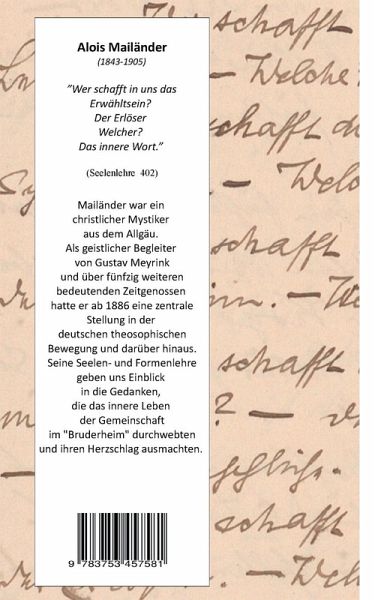 Alois Mailänder
(1843-1905)
"Wer schafft in uns das
Erwähltsein?
Der Erlöser
Welcher?
Das innere Wort."
(Seelenlehre 402)
Mailänder war ein
christlicher Mystiker
aus dem Allgäu.
Als geistlicher Begleiter
von Gustav Meyrink
und über fünfzig weiteren
bedeutenden Zeitgenossen
hatte er ab 1886 eine zentrale
Stellung in der
deutschen theosophischen
Bewegung und darüber hinaus.
Seine Seelen- und Formenlehre
geben uns Einblick
in die Gedanken,
die das innere Leben
der Gemeinschaft
im "Bruderheim" durchwebten
und ihren Herzschlag ausmachten.
9 783753 457581
schafft
– Welche
schafft d
– Welc
schafft
– We
schafft
? –
schafft